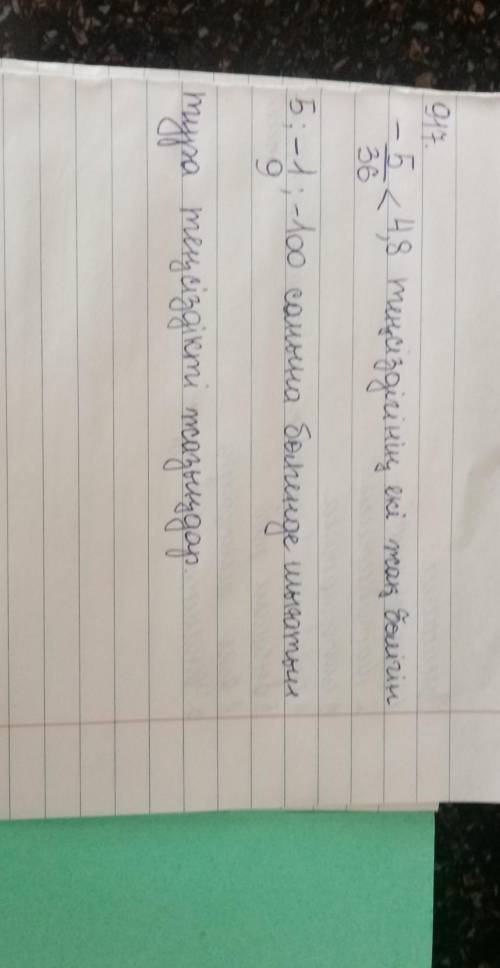 917.
- 5/36 < 4,8 теңсіздігінің екі жақ бөлігін
5; - 1/9; -100 санына бөлгенде шығатын
тура теңсіздікті жазыңдар.